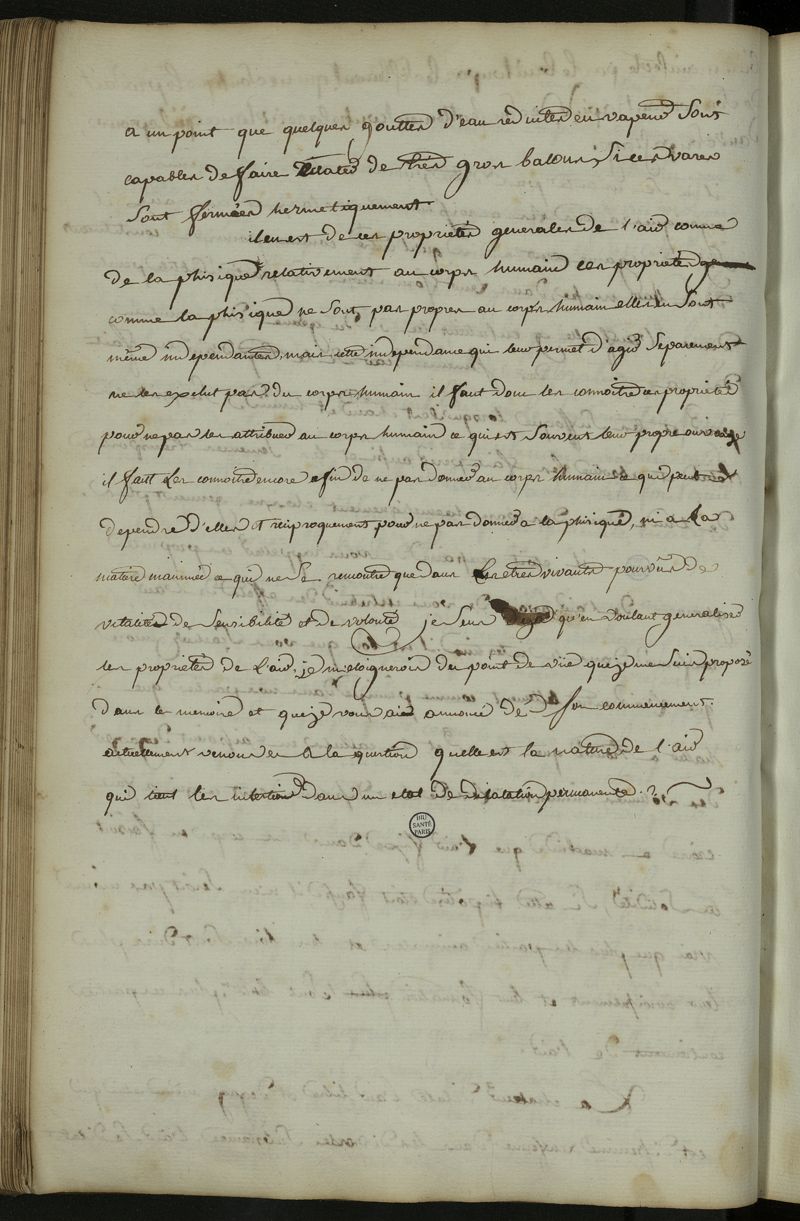 a un point que quelques gouttes d'eau réduites en vapeur sont
capables de faire éclater de très gros balons si ces vases
sont fermées hermetiquement
il en est de ces proprietés generales de l'air comme
de la phisique relativement au corps humain ces proprietés
comme la phisique ne sont pas propres au corps humain elles en sont
même independantes, mais cette independance qui leur permet d'agir separement
ne les exclut pas du corps humain il faut donc les connoître ces proprietés
pour ne pas les attribuer au corps humain ce qui est souvent leur propre ouvrage
il faut les connoitre encore afin de ne pas donner au corps humain ce qui peut
dependre d'elles et réciproquement pour ne pas donner a la phisique, ni a la
matière inanimée ce qui ne se rencontre que dans les etres vivants pourvus de
vitalité de sensibilité et de volonté je sens qu'en voulant generaliser
les proprietés de l'air, je m'eloignerois du point de vüe que je me suis proposé
dans ce memoire et que je vous ai annoncé dès son commencement.
actuellement venons en a la question quelle est la nature de l'air
qui tient les intestins dans un etat de dilatation permanente ?
BIU
SANTÉ
PARIS